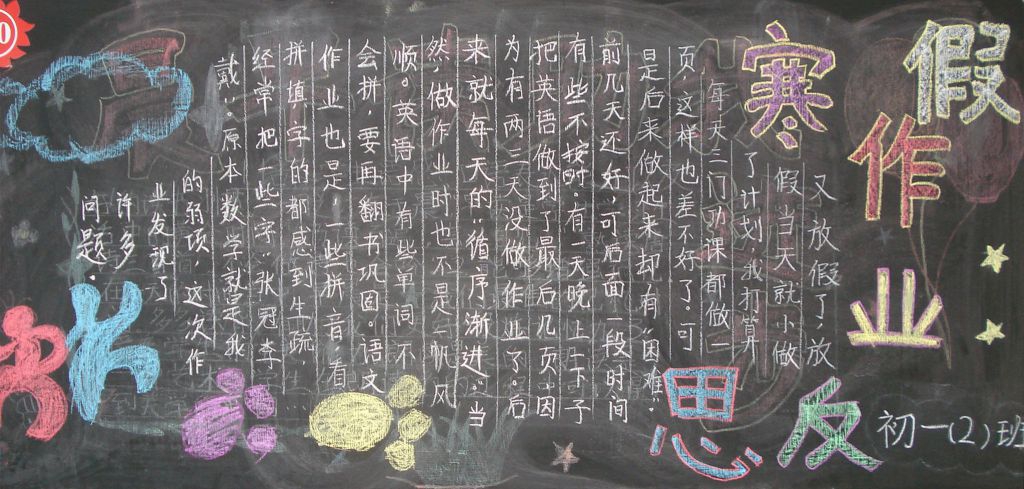 寒假
作业
反思
初一(2)班
又放假了，放
假当天就小做
了计划，我打算
每天三门功课都做一
页，这样也差不好了。可
是后来做起来却有“困难”。
前几天还好，可后面一段时间
有些不按时，有一天晚上一下子
把英语做到了最后几页，因
为有两三天没做作业了。后
来就每天的“循序渐进”。当
然，做作业时也不是一帆风
顺。英语中有些单词不
会拼，要再翻书巩固。语文
作业也是，一些拼音，看
拼填字的都感到生疏…
经常把一些字“张冠李
戴”。原本数学就是我
的弱项，这次作
业发现了
许多
问题。